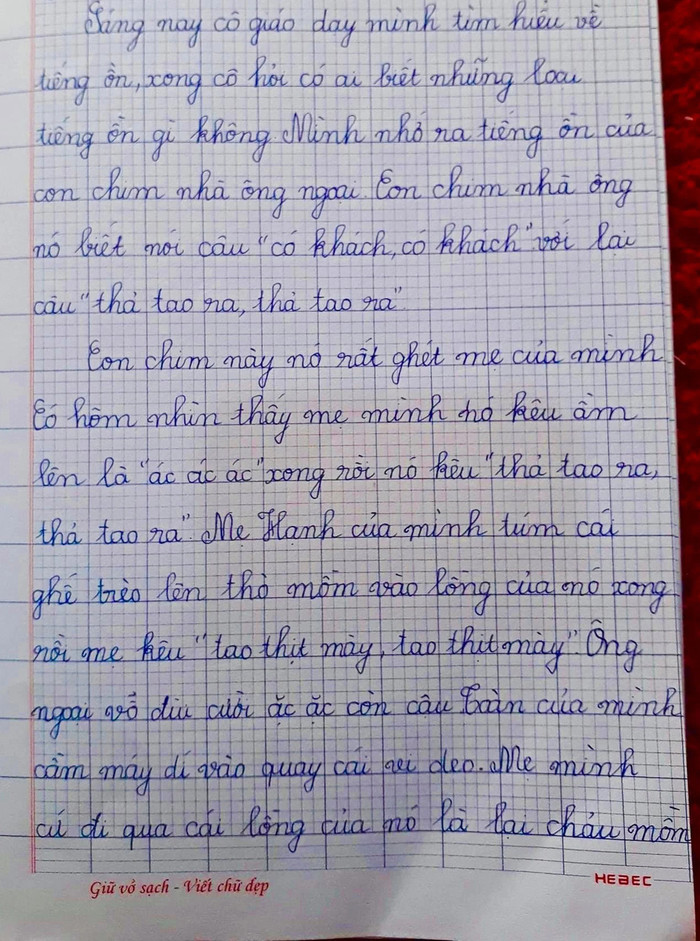 Sáng nay cô giáo dạy mình tìm hiểu về
tiếng ồn, xong cô hỏi có ai biết những loại
tiếng ồn gì không. Mình nhớ ra tiếng ồn của
con chim nhà ông ngoại. Con chim nhà ông
nó biết nói câu "có khách, có khách" với lại
câu "thả tao ra, thả tao ra"
Con chim này nó rất ghét mẹ của mình
Có hôm nhìn thấy mẹ mình nó kêu ầm
lên là "ác ác ác" xong rồi nó kêu "thả tao ra,
thả tao ra". Mẹ Hạnh của mình túm cái
ghế trèo lên thò mồm vào lồng của nó xong
rồi mẹ kêu "tao thịt mày, tao thịt mày". Ông
ngoại vỗ đùi cười ặc ặc còn cậu Toàn của mình
cầm máy dí vào quay cái vi deo. Mẹ mình
cứ đi qua cái lồng của nó là lại chẩu mồm
Giữ vở sạch - Viết chữ đẹp
HEBEC